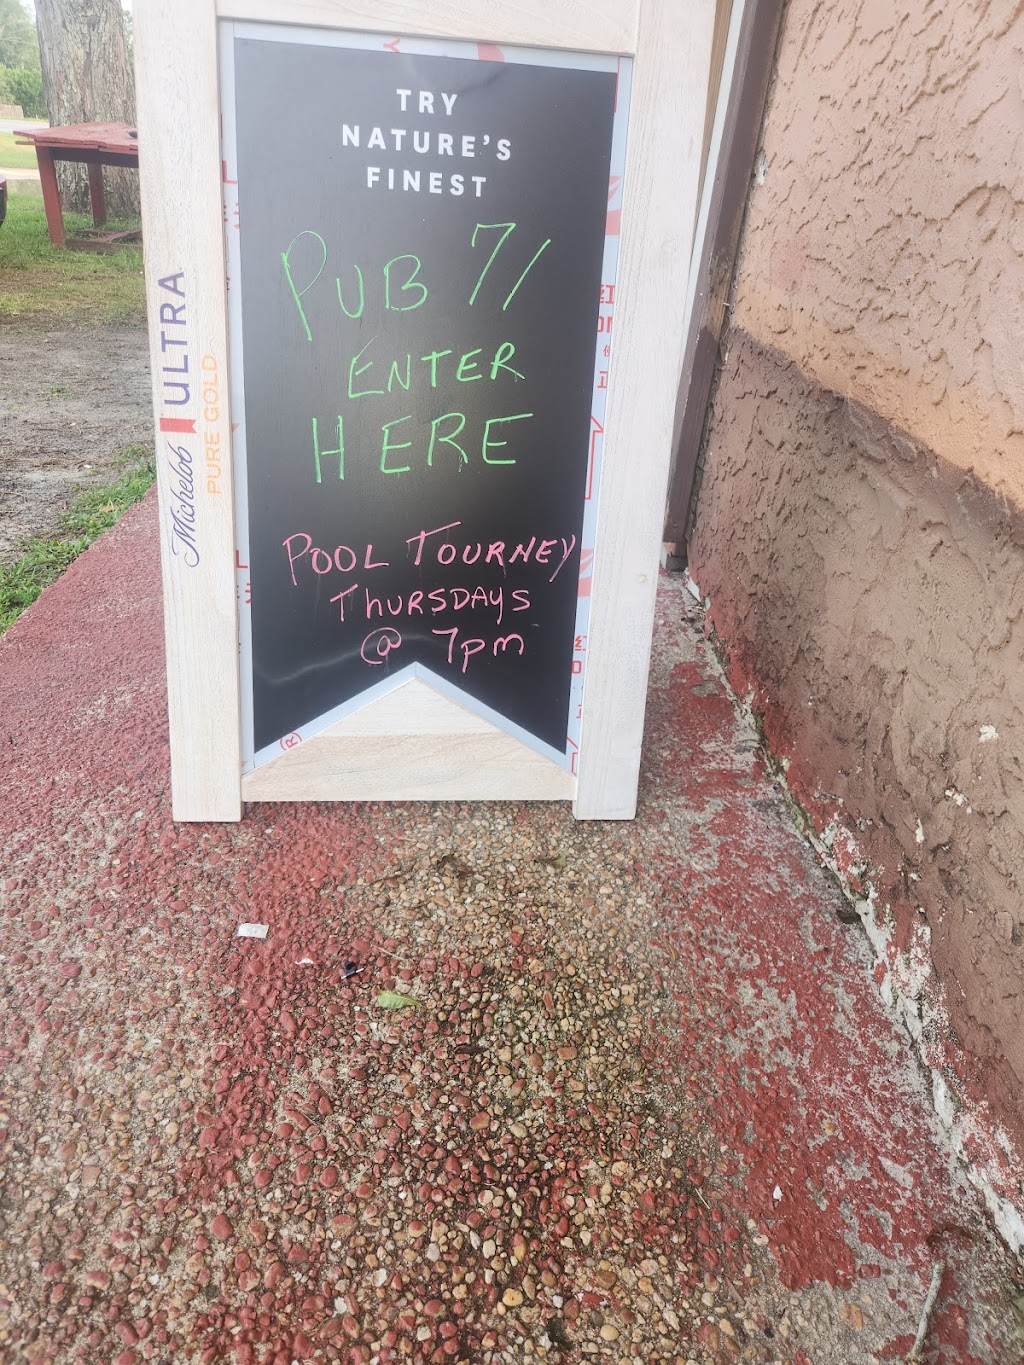 TRY
NATURE'S
FINEST
PUB 71
ENTER
HERE
POOL TOURNEY
THURSDAYS
@ 7pm
Michelob ULTRA
PURE GOLD